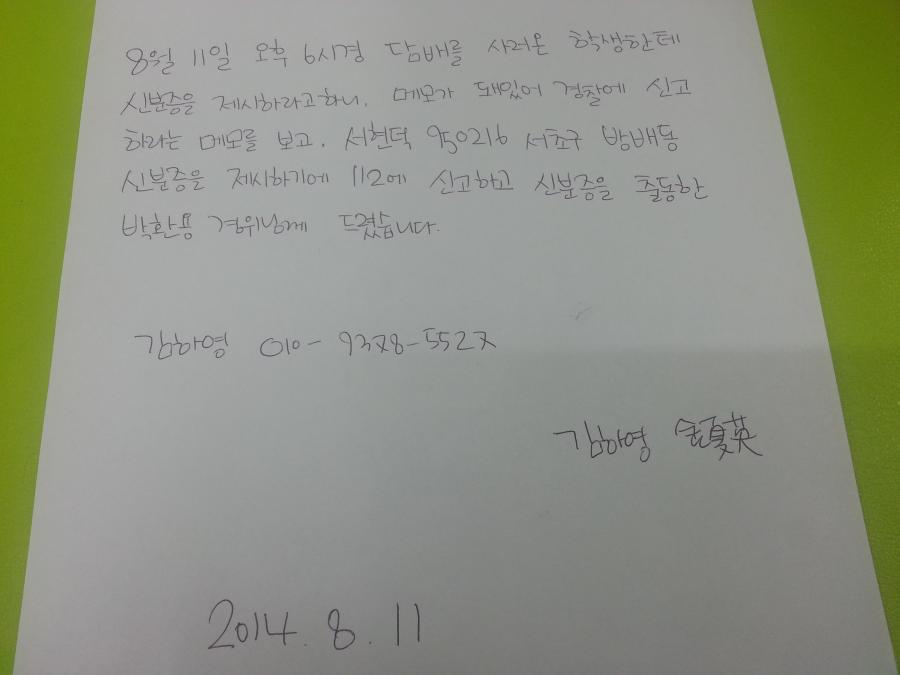 8월 11일 오후 6시경 담배를 사러온 학생한테
신분증을 제시하라고하니, 메모가 돼있어 경찰에 신고
하라는 메모를 보고, 서현덕 950216 서초구 방배동
신분증을 제시하기에 112에 신고하고 신분증을 출동한
박환용 경위님께 드렸습니다.
김하영 010-9378-5527
김하영 金夏英
2014. 8. 11